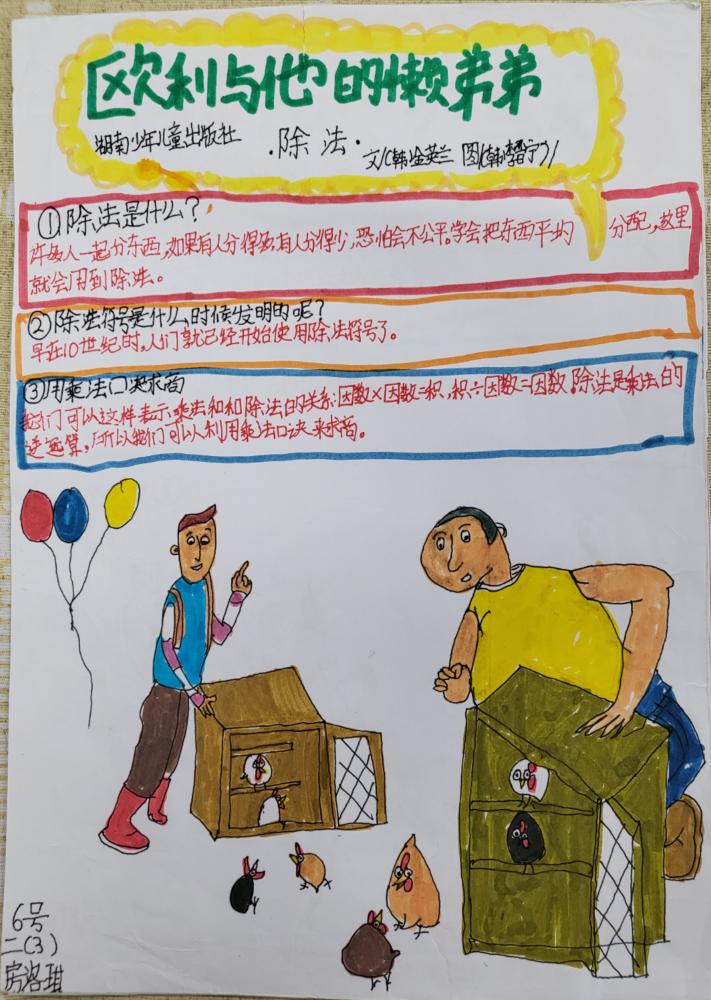 欧利与他的懒弟弟
湖南少年儿童出版社
·除法·
文(韩)金英兰 图(韩)李宁
①除法是什么?
许多人一起分东西,如果有人分得多,有人分得少,恐怕会不公平。学会把东西平均分配,这里
就会用到除法。
②除法符号是什么时候发明的呢?
早在10世纪时,人们就已经开始使用除法符号了。
③用乘法口决求商
我们可以这样表示乘法和和除法的关系:因数×因数=积,积÷因数=因数。除法是乘法的
逆运算,所以我们可以利用乘法口决来求商。
6号
二(3)
房洛琪